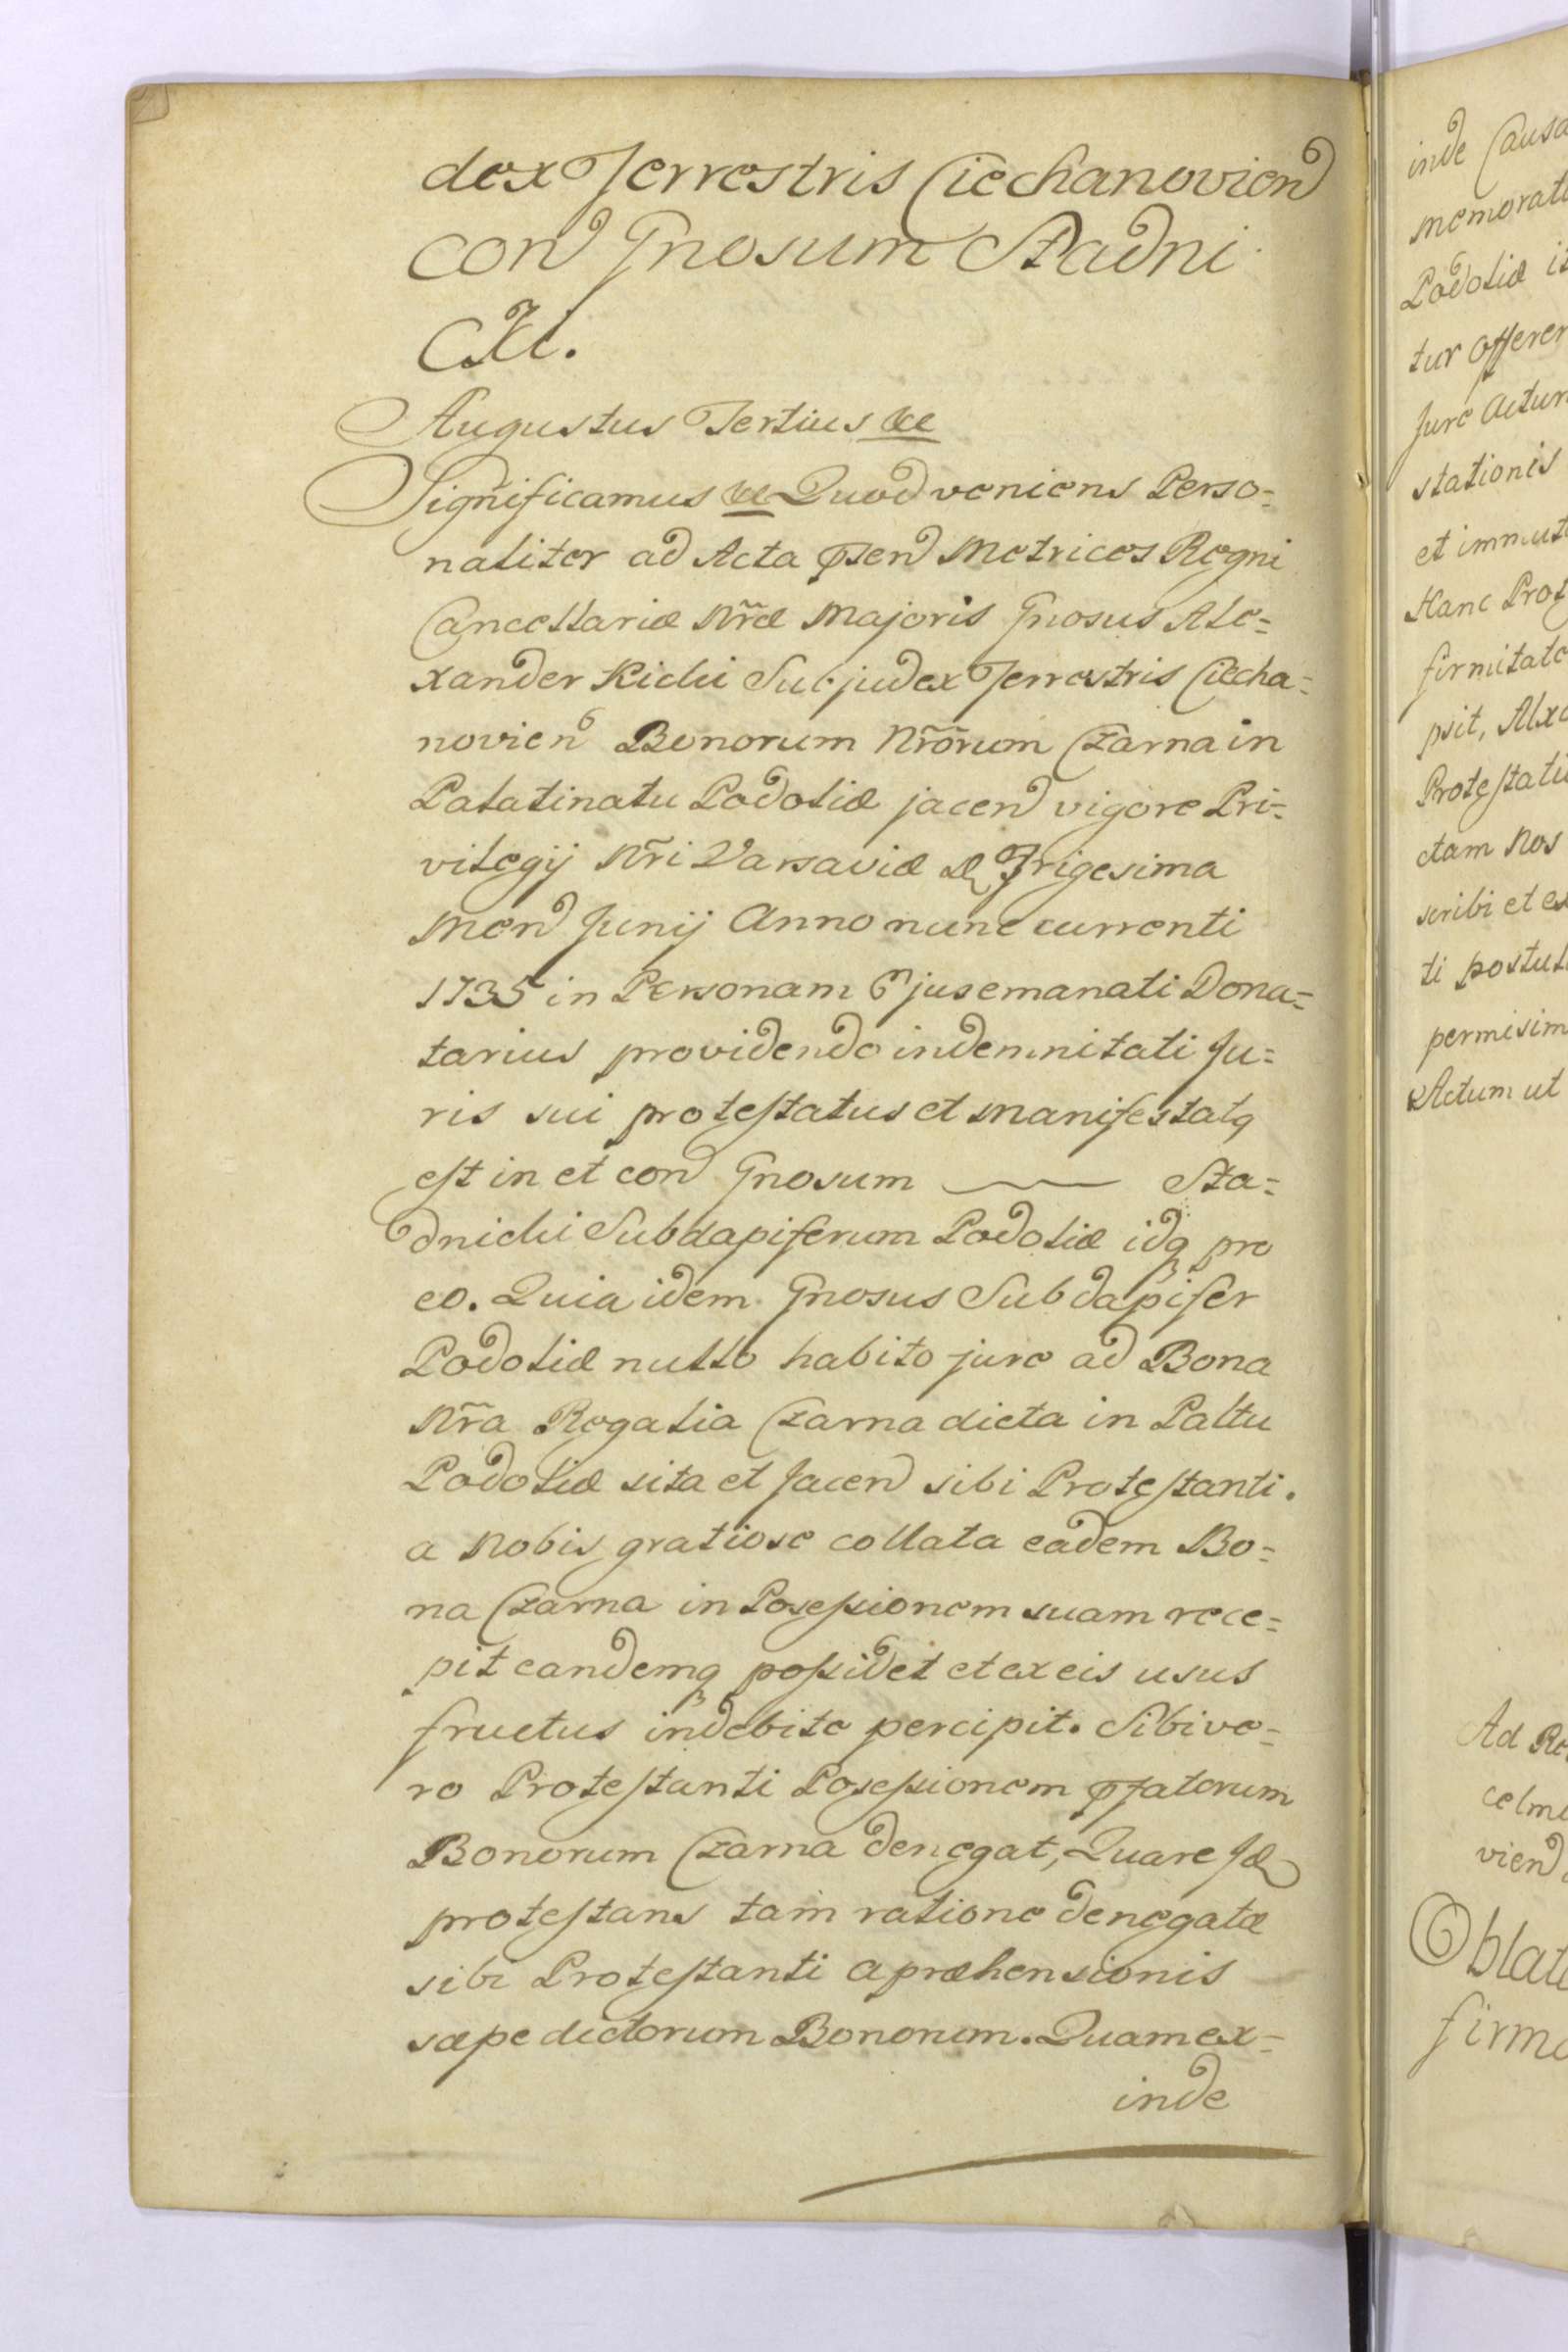 dex Terrestris Ciechanovien
con Gnosum Stadni
cki.
Augustus Tertius &c
Significamus &c Quod veniens Perso=
naliter ad Acta pñsen Metrices Regni
Cancellariæ Nr̃æ Majoris Gnosus Ale=
xander Kicki Subjudex Terrestris Ciecha=
novien Bonorum Nr̃orum Czarna in
Palatinatu Podoliæ jacen vigore Pri=
vilegij Nr̃i Varsaviæ Trigesima
Men Junij Anno nunc currenti
1735 in Personam Ejus emanati Dona=
tarius providendo indemnitati Ju=
ris sui protestatus et manifestatq
est in et con Gnosum —— Sta=
dnicki Subdapiferum Podoliæ idq pro
eo. Quia idem Gnosus Subdapifer
Podoliæ nullo habito jure ad Bona
Nr̃a Regalia Czarna dicta in Paltu
Podoliæ sita et Jacen sibi Protestanti.
a Nobis gratiose collata eadem Bo=
na Czarna in Posessionem suam rece=
pit eandemq possidet et ex eis usus
fructus indebite percipit. Sibi ve=
ro Protestanti Posessionem pfatorum
Bonorum Czarna denegat, Quare
protestans tam ratione denegatæ
sibi Protestanti apræhensionis
sæpe dictorum Bonorum. Quam ex=
inde
inde Causa
memorat
Podoliæ
tur offerer
Jure actur
stationis
et immut
Hanc Prot
firmitate
psit, Alx
Protestati
ctam Nos
scribi et ex
ti postul
permisim
Actum ut
Ad Re
celm
vien
Oblat
firm